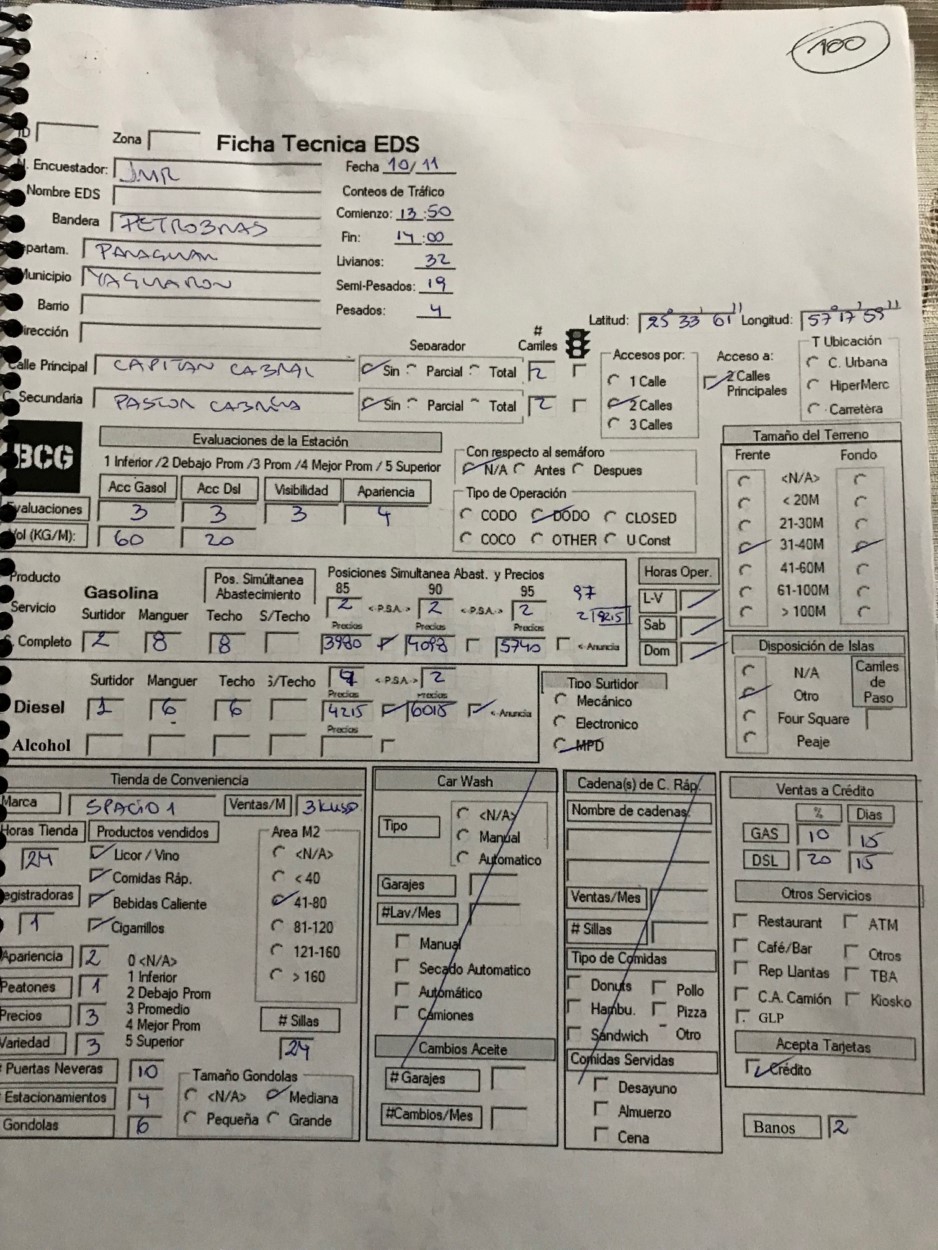 100
ID Zona Ficha Tecnica EDS
N. Encuestador: JMR Fecha 10/11
Nombre EDS Conteos de Tráfico
Bandera PETROBRAS Comienzo: 13:50
Fin: 14:00
Departam. PARAGUARI Livianos: 32
Municipio YAGUARON Semi-Pesados: 19
Barrio Pesados: 4
Dirección Latitud: 25° 33' 61" Longitud: 57° 17' 59"
Separador # Carriles
Calle Principal CAPITAN CABRAL Sin Parcial Total 2
C. Secundaria PASTOR CABRERA Sin Parcial Total 2
Accesos por:
1 Calle
2 Calles
3 Calles
Acceso a:
2 Calles Principales
T Ubicación
C. Urbana
HiperMerc
Carretera
BCG
Evaluaciones de la Estación
1 Inferior /2 Debajo Prom /3 Prom /4 Mejor Prom / 5 Superior
Acc Gasol Acc Dsl Visibilidad Apariencia
Evaluaciones 3 3 3 4
Vol (KG/M): 60 20
Con respecto al semáforo
N/A Antes Despues
Tipo de Operación
CODO DODO CLOSED
COCO OTHER U Const
Tamaño del Terreno
Frente Fondo
<N/A>
< 20M
21-30M
31-40M
41-60M
61-100M
> 100M
Producto Gasolina Pos. Simúltanea Abastecimiento Posiciones Simultanea Abast. y Precios
85 90 95 97
Servicio Surtidor Manguer Techo S/Techo 2 <P.S.A.> 2 <P.S.A.> 2 2
Precios Precios Precios
S. Completo 2 8 8 3980 4098 5740 <-Anuncia
Horas Oper.
L-V
Sab
Dom
Surtidor Manguer Techo S/Techo <P.S.A.> 2
Precios Precios
Diesel 1 6 6 4215 6015 <-Anuncia
Precios
Alcohol
Tipo Surtidor
Mecánico
Electronico
MPD
Disposición de Islas
N/A
Otro
Four Square
Peaje
Carriles de Paso
Tienda de Conveniencia
Marca SPACIO 1 Ventas/M 3 KUSD
Horas Tienda 24
Productos vendidos
Licor / Vino
Comidas Ráp.
Bebidas Caliente
Cigarrillos
Registradoras 1
Area M2
<N/A>
< 40
41-80
81-120
121-160
> 160
Apariencia 2
Peatones 1
Precios 3
Variedad 3
0 <N/A>
1 Inferior
2 Debajo Prom
3 Promedio
4 Mejor Prom
5 Superior
# Sillas 24
# Puertas Neveras 10
Estacionamientos 4
Gondolas 6
Tamaño Gondolas
<N/A> Mediana
Pequeña Grande
Car Wash
Tipo
<N/A>
Manual
Automatico
Garajes
#Lav/Mes
Manual
Secado Automatico
Automático
Camiones
Cambios Aceite
# Garajes
#Cambios/Mes
Cadena(s) de C. Ráp.
Nombre de cadenas
Ventas/Mes
# Sillas
Tipo de Comidas
Donuts Pollo
Hambu. Pizza
Sandwich Otro
Comidas Servidas
Desayuno
Almuerzo
Cena
Ventas a Crédito
% Dias
GAS 10 15
DSL 20 15
Otros Servicios
Restaurant ATM
Café/Bar Otros
Rep Llantas TBA
C.A. Camión Kiosko
GLP
Acepta Tarjetas
Crédito
Banos 2